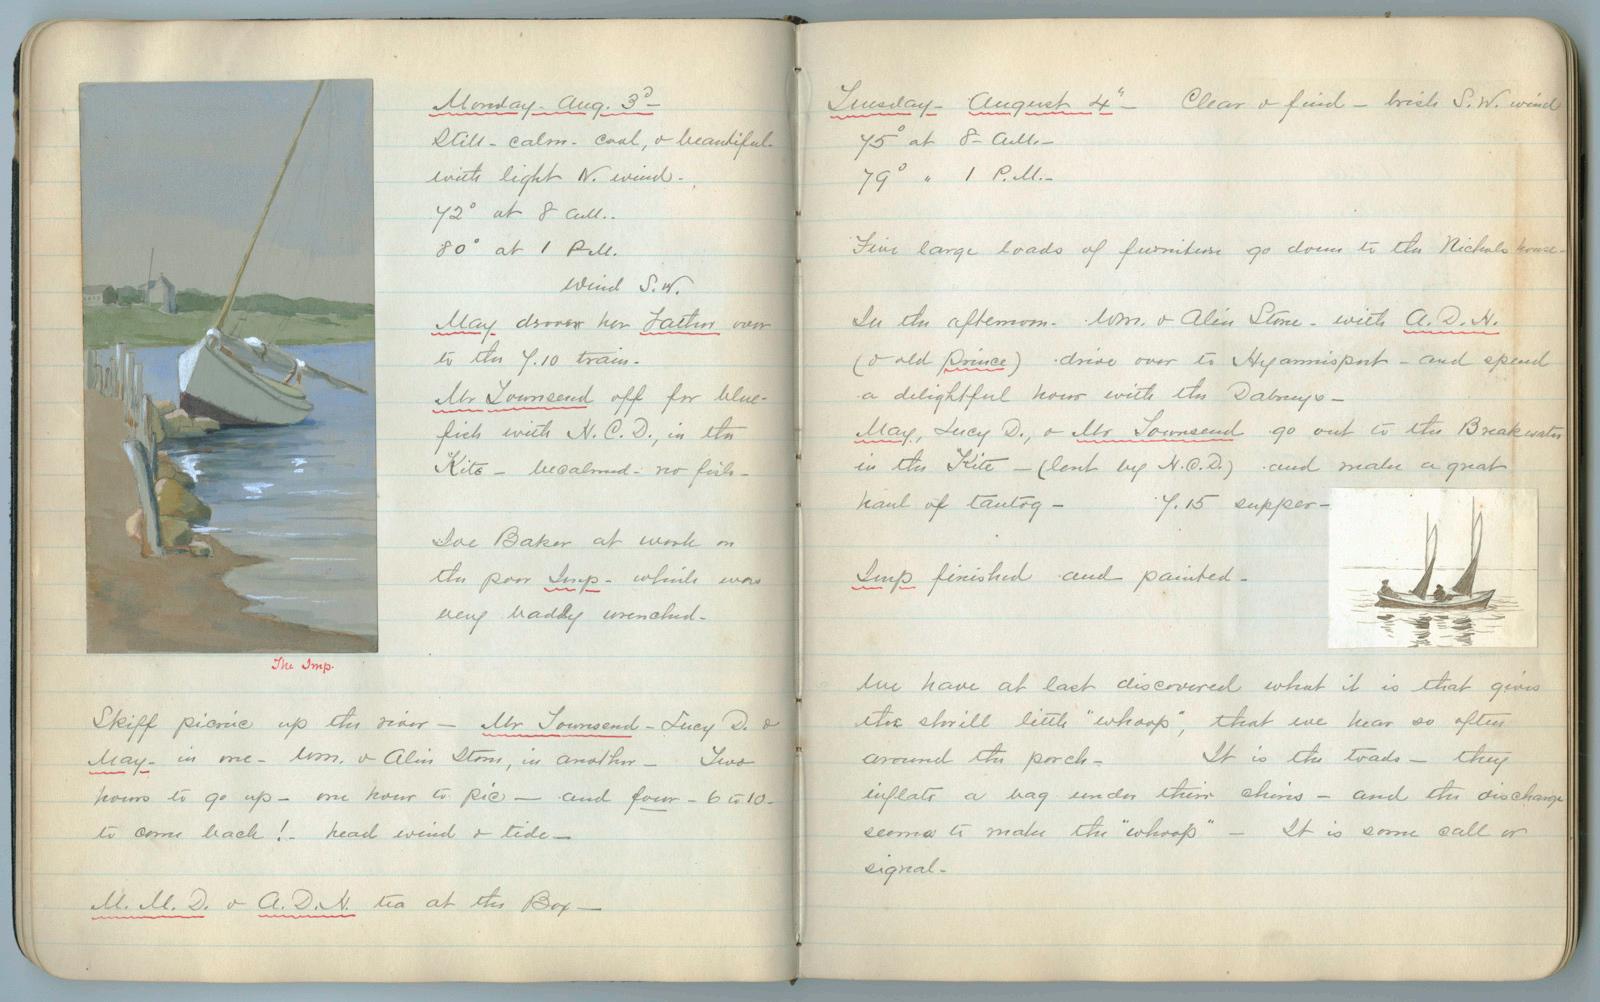 Monday - Aug. 3d -
Still - calm - cool, & beautiful -
with light N. wind -
72° at 8 A.M..
80° at 1 P.M.
Wind S.W.
May drove her Father over
to the 7.10 train -
Mr Townsend off for blue-
fish with N.C.D., in the
Kite - becalmed - no fish -
Joe Baker at work on
the poor Imp - which was
very badly wrenched -
The Imp.
Skiff picnic up the river - Mr Townsend - Lucy D. &
May - in one - Wm. & Alice Stone, in another - Two
hours to go up - one hour to pic - and four - 6 to 10 -
to come back! - head wind & tide -
M. M. D. & A.D.N. tea at the Box -
Tuesday - August 4" - Clear & find - brisk S.W. wind
75° at 8 A.M. -
79° " 1 P.M. -
Five large loads of furniture go down to the Nichols house -
In the afternoon - Wm. & Alice Stone - with A.D.N.
(& old Prince) drive over to Hyannisport - and spend
a delightful hour with the Dabneys -
May, Lucy D., & Mr Townsend go out to the Breakwater
in the Kite - (lent by N.C.D.) and make a great
haul of tautog - 7.15 supper -
Imp finished and painted -
We have at last discovered what it is that gives
the shrill little "whoop", that we hear so often
around the porch - It is the toads - they
inflate a bag under their chins - and the discharge
seems to make the "whoop" - It is some call or
signal -